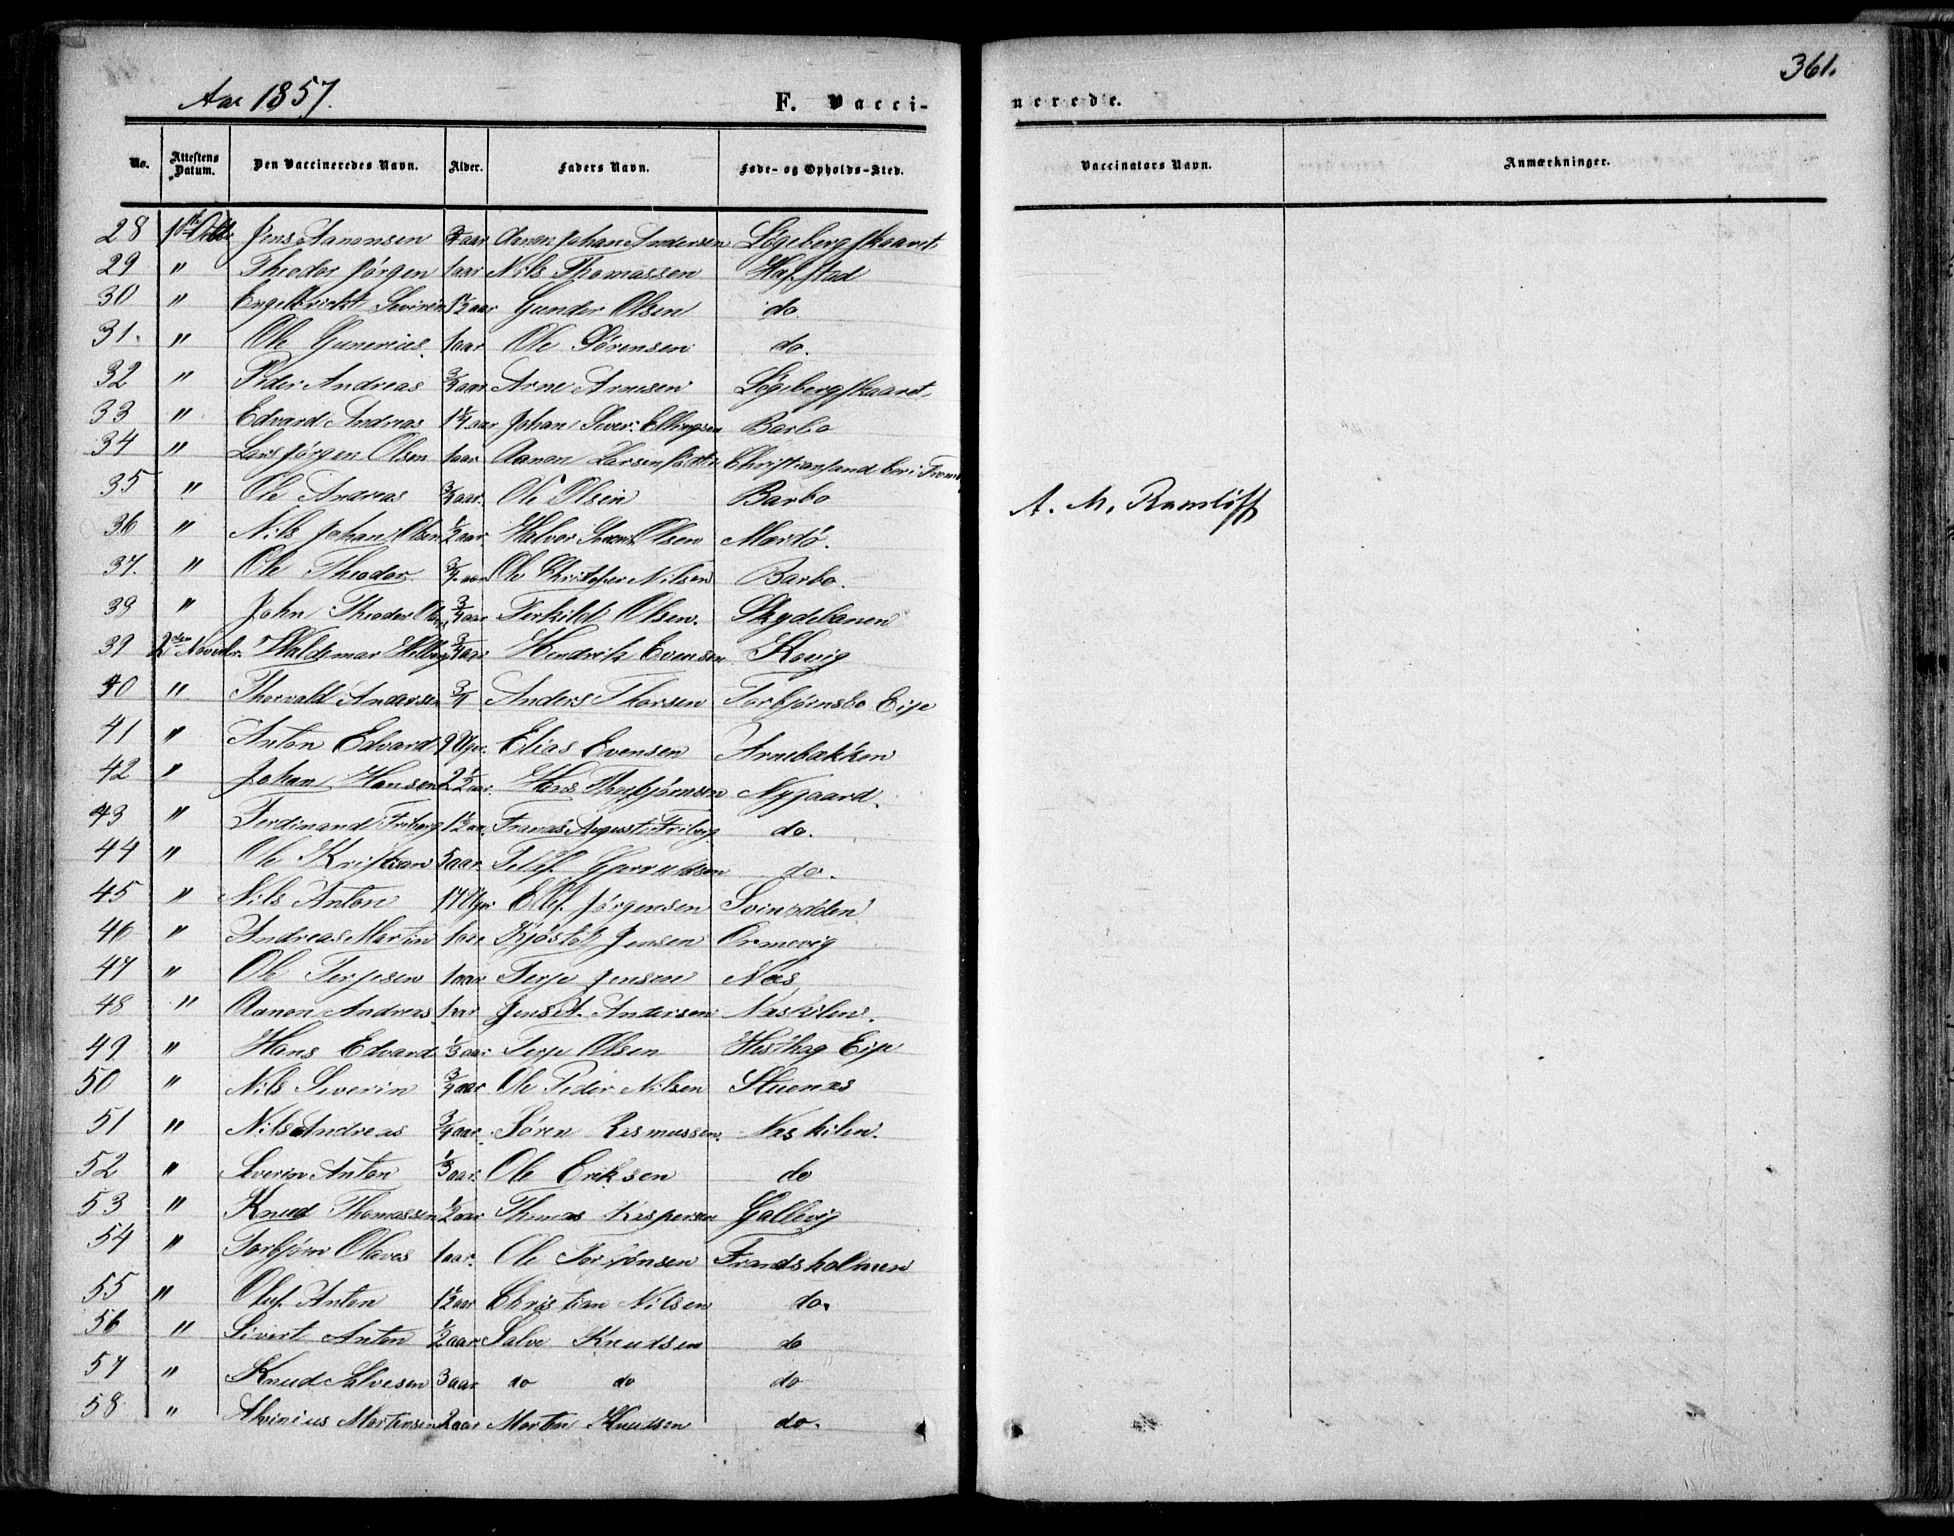 361.
Aar 1857.
F. Vacci-
nerede.
No. Attestens Datum. Den Vaccineredes Navn. Alder. Faders Navn. Føde- og Opholds-Sted. Vaccinators Navn. Anmærkninger.
28 10de Octbr Jens Aanonsen 3/4 aar Aanon Johan Andersen Løgebergskaaret
29 " Theodor Jørgen 1 aar Nils Thomassen Hafstad
30 " Engelbrickt Severin 1 1/2 aar Gunder Olsen do.
31. " Ole Gunerius 1 aar Ole Sørensen do.
32 " Peder Andreas 3/4 aar Arne Arnesen Løgebergskaaret
33 " Edvard Andreas 1 1/4 aar Johan Sever: Ellingsen Barbo
34 " Lars Jørgen Olsen 1 aar Aanon Larsen Christiansand bor i Tromø
35 " Ole Andreas 3/4 aar. Ole Olsen Barbo
A. M. Ramløff
36 " Nils Johan Olsen 1/2 aar. Halvor Olsen Mærdø.
37. " Ole Theodor 3/4 aar Ole Christopher Nilsen Barbo.
38 " John Theodor 3/4 aar Terkild Olsen. Skydebanen
39 2den Novebr. Waldemar 3/4 aar Hendrik Evensen Kovig
40 " Thorvald Andersen 3/4 Anders Thorsen Torbjørnsbo Eije
41 " Anton Edvard 9 Uger. Elias Evensen Arnebækken
42 " Johan Hansen 2 1/2 aar. Hans Thorbjørnsen Nygaard.
43 " Ferdinand Friberg 1 1/2 aar. Frans August Friberg do.
44 " Ole Kristian 5 aar. Tellef do.
45 " Nils Anton 17 Uger Ellef Jørgensen Svinodden
46 " Andreas Martin 1 aar Kjøstel Jensen Ormevig
47 " Ole Terjesen 1 aar Terje Jensen Næs
48 " Aanon Andreas 1 aar Jens A. Andersen Næskilen.
49 " Hans Edvard 1/3 aar Terje Olsen Hesthag Eije
50 " Nils Severin 3/4 aar Ole Peder Nilsen Stuenæs
51 " Nils Andreas 3/4 aar. Søren Rasmussen. Næskilen.
52 " Severin Anton 1/3 aar. Ole Eriksen do
53 " Knud Thomassen 1/2 aar Thomas Kaspersen Gallevig
54 " Torbjørn Olaves 1 aar. Ole Torbjønsen Frandsholmen
55 " Oluf Anton 1 1/2 aar Christian Nilsen do.
56 " Sivert Anton 1/2 aar Salve Knudsen do
57 " Knud Salvesen 3 aar do do do
58 " Alvinius Mortensen 2 aar Morten Knudsen do.